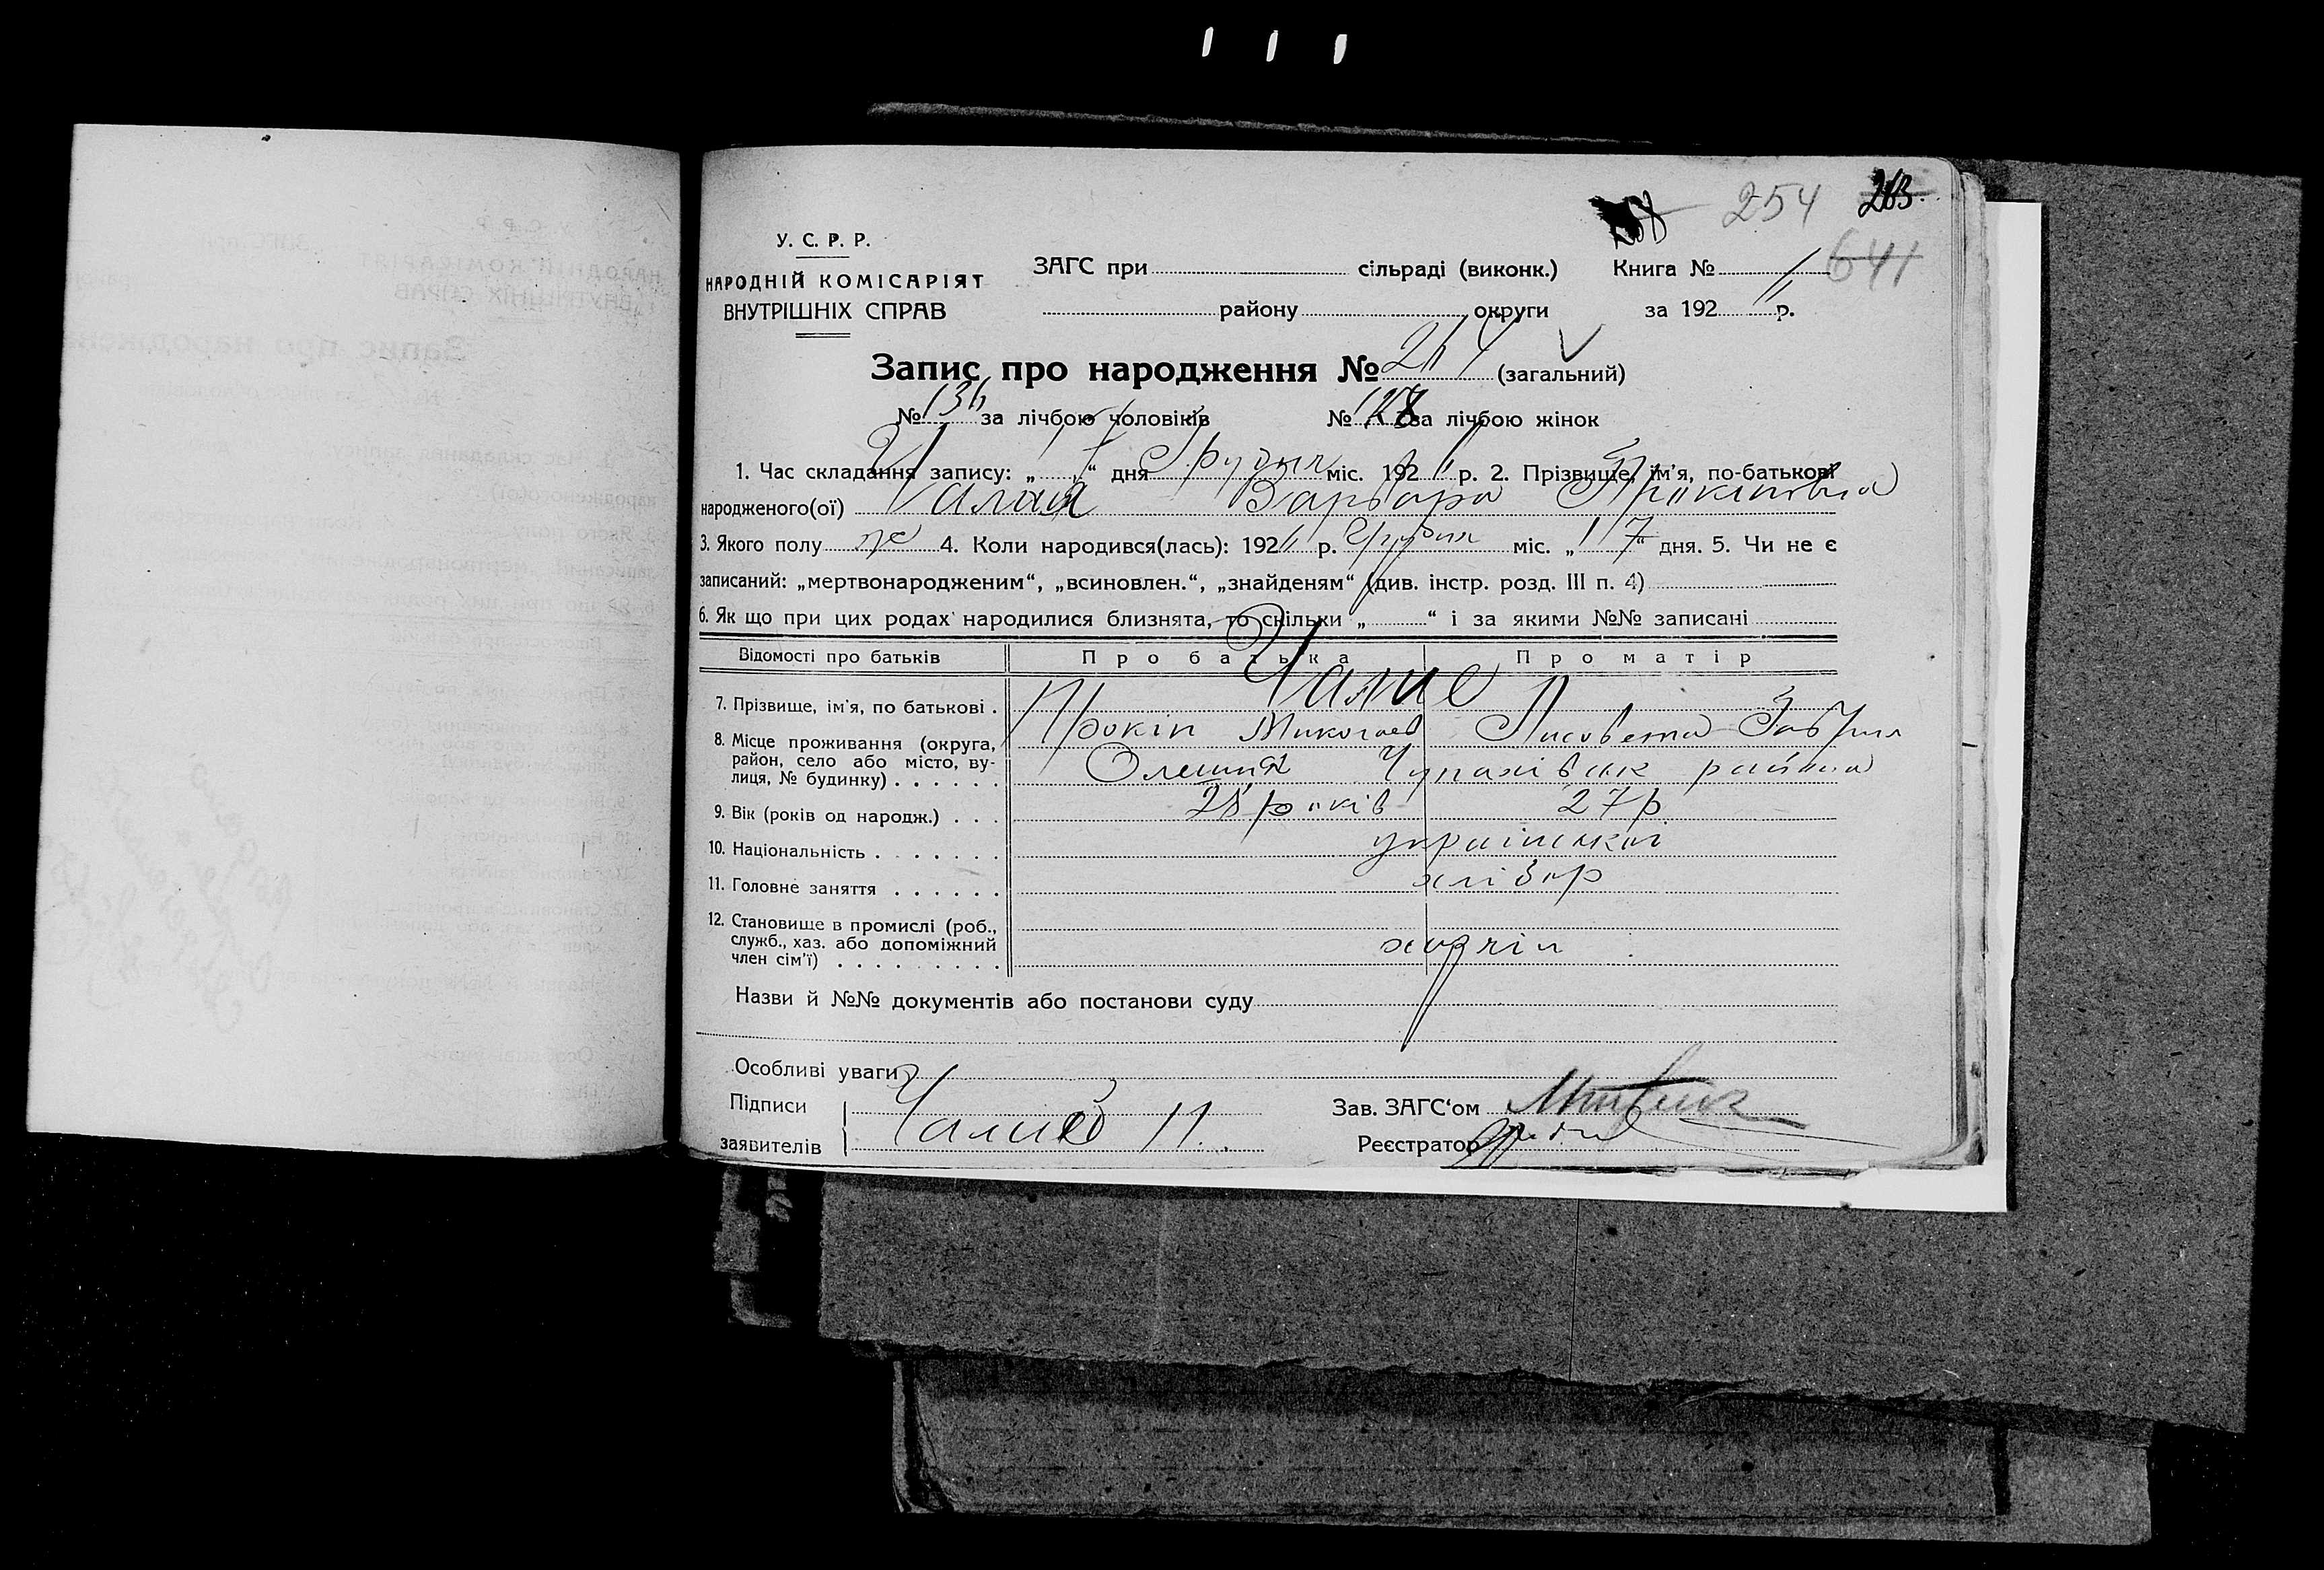 254 263
641
У. С. Р. Р.
НАРОДНІЙ КОМІСАРІЯТ
ВНУТРІШНІХ СПРАВ
ЗАГС при сільраді (виконк.) Книга №
району округи за 192 " р.
Запис про народження № 264 (загальний)
№ 136 за лічбою чоловіків № 128 за лічбою жінок
1. Час складання запису: „ “ дня Грудня міс. 192 " р. 2. Прізвище, ім’я, по-батькові
народженого(ої) Чалая Варвара Прокіповна
3. Якого полу ж 4. Коли народився(лась): 192 " р. Грудня міс. „ 17 “ дня. 5. Чи не є
записаний: „мертвонародженим“, „всиновлен.“, „знайденям“ (див. інстр. розд. III п. 4)
6. Як що при цих родах народилися близнята, то скільки „ “ і за якими №№ записані
Відомості про батьків Про батька Про матір
Чалие
7. Прізвище, ім’я, по батькові . Прокіп Миколаев Лисовета Гаврил
8. Місце проживання (округа,
район, село або місто, ву-
лиця, № будинку) . . . . . . Олешня Чупахівськ района
9. Вік (років од народж.) . . . 28 років 27 р
10. Національність . . . . . . . української
11. Головне заняття . . . . . . хлібор
12. Становище в промислі (роб.,
служб., хаз. або допоміжний
член сім’ї) . . . . . . . . .
Назви й №№ документів або постанови суду
Особливі уваги
Підписи
заявителів Чалий П.
Зав. ЗАГС‘ом
Реєстратор